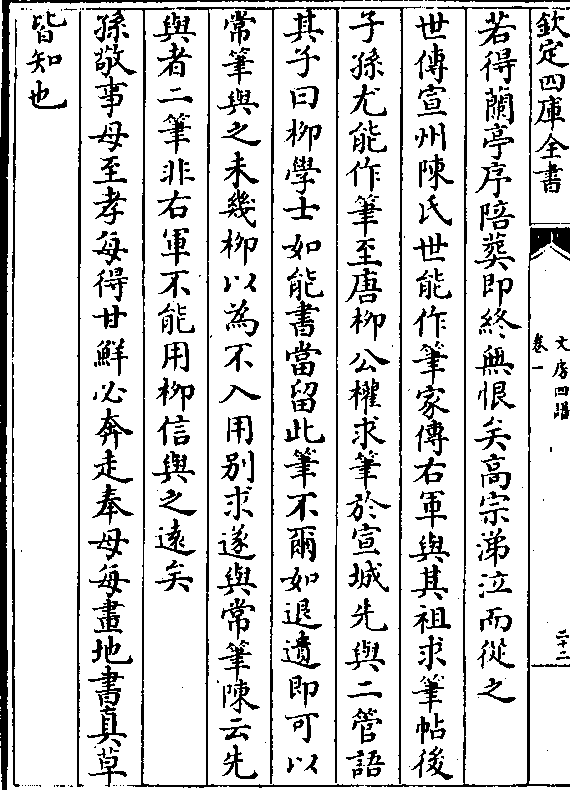 欽定四庫全書
文房四譜
卷一
二十二
若得蘭亭序陪葬即終無恨矣高宗涕泣而從之
世傳宣州陳氏世能作筆家傳右軍與其祖求筆帖後
子孫尤能作筆至唐柳公權求筆於宣城先與二管語
其子曰柳學士如能書當留此筆不爾如退還即可以
常筆與之未幾柳以為不入用别求遂與常筆陳云先
與者二筆非右軍不能用柳信與之遠矣
孫敬事母至孝每得甘鮮必奔走奉母每畫地書真草
皆知也